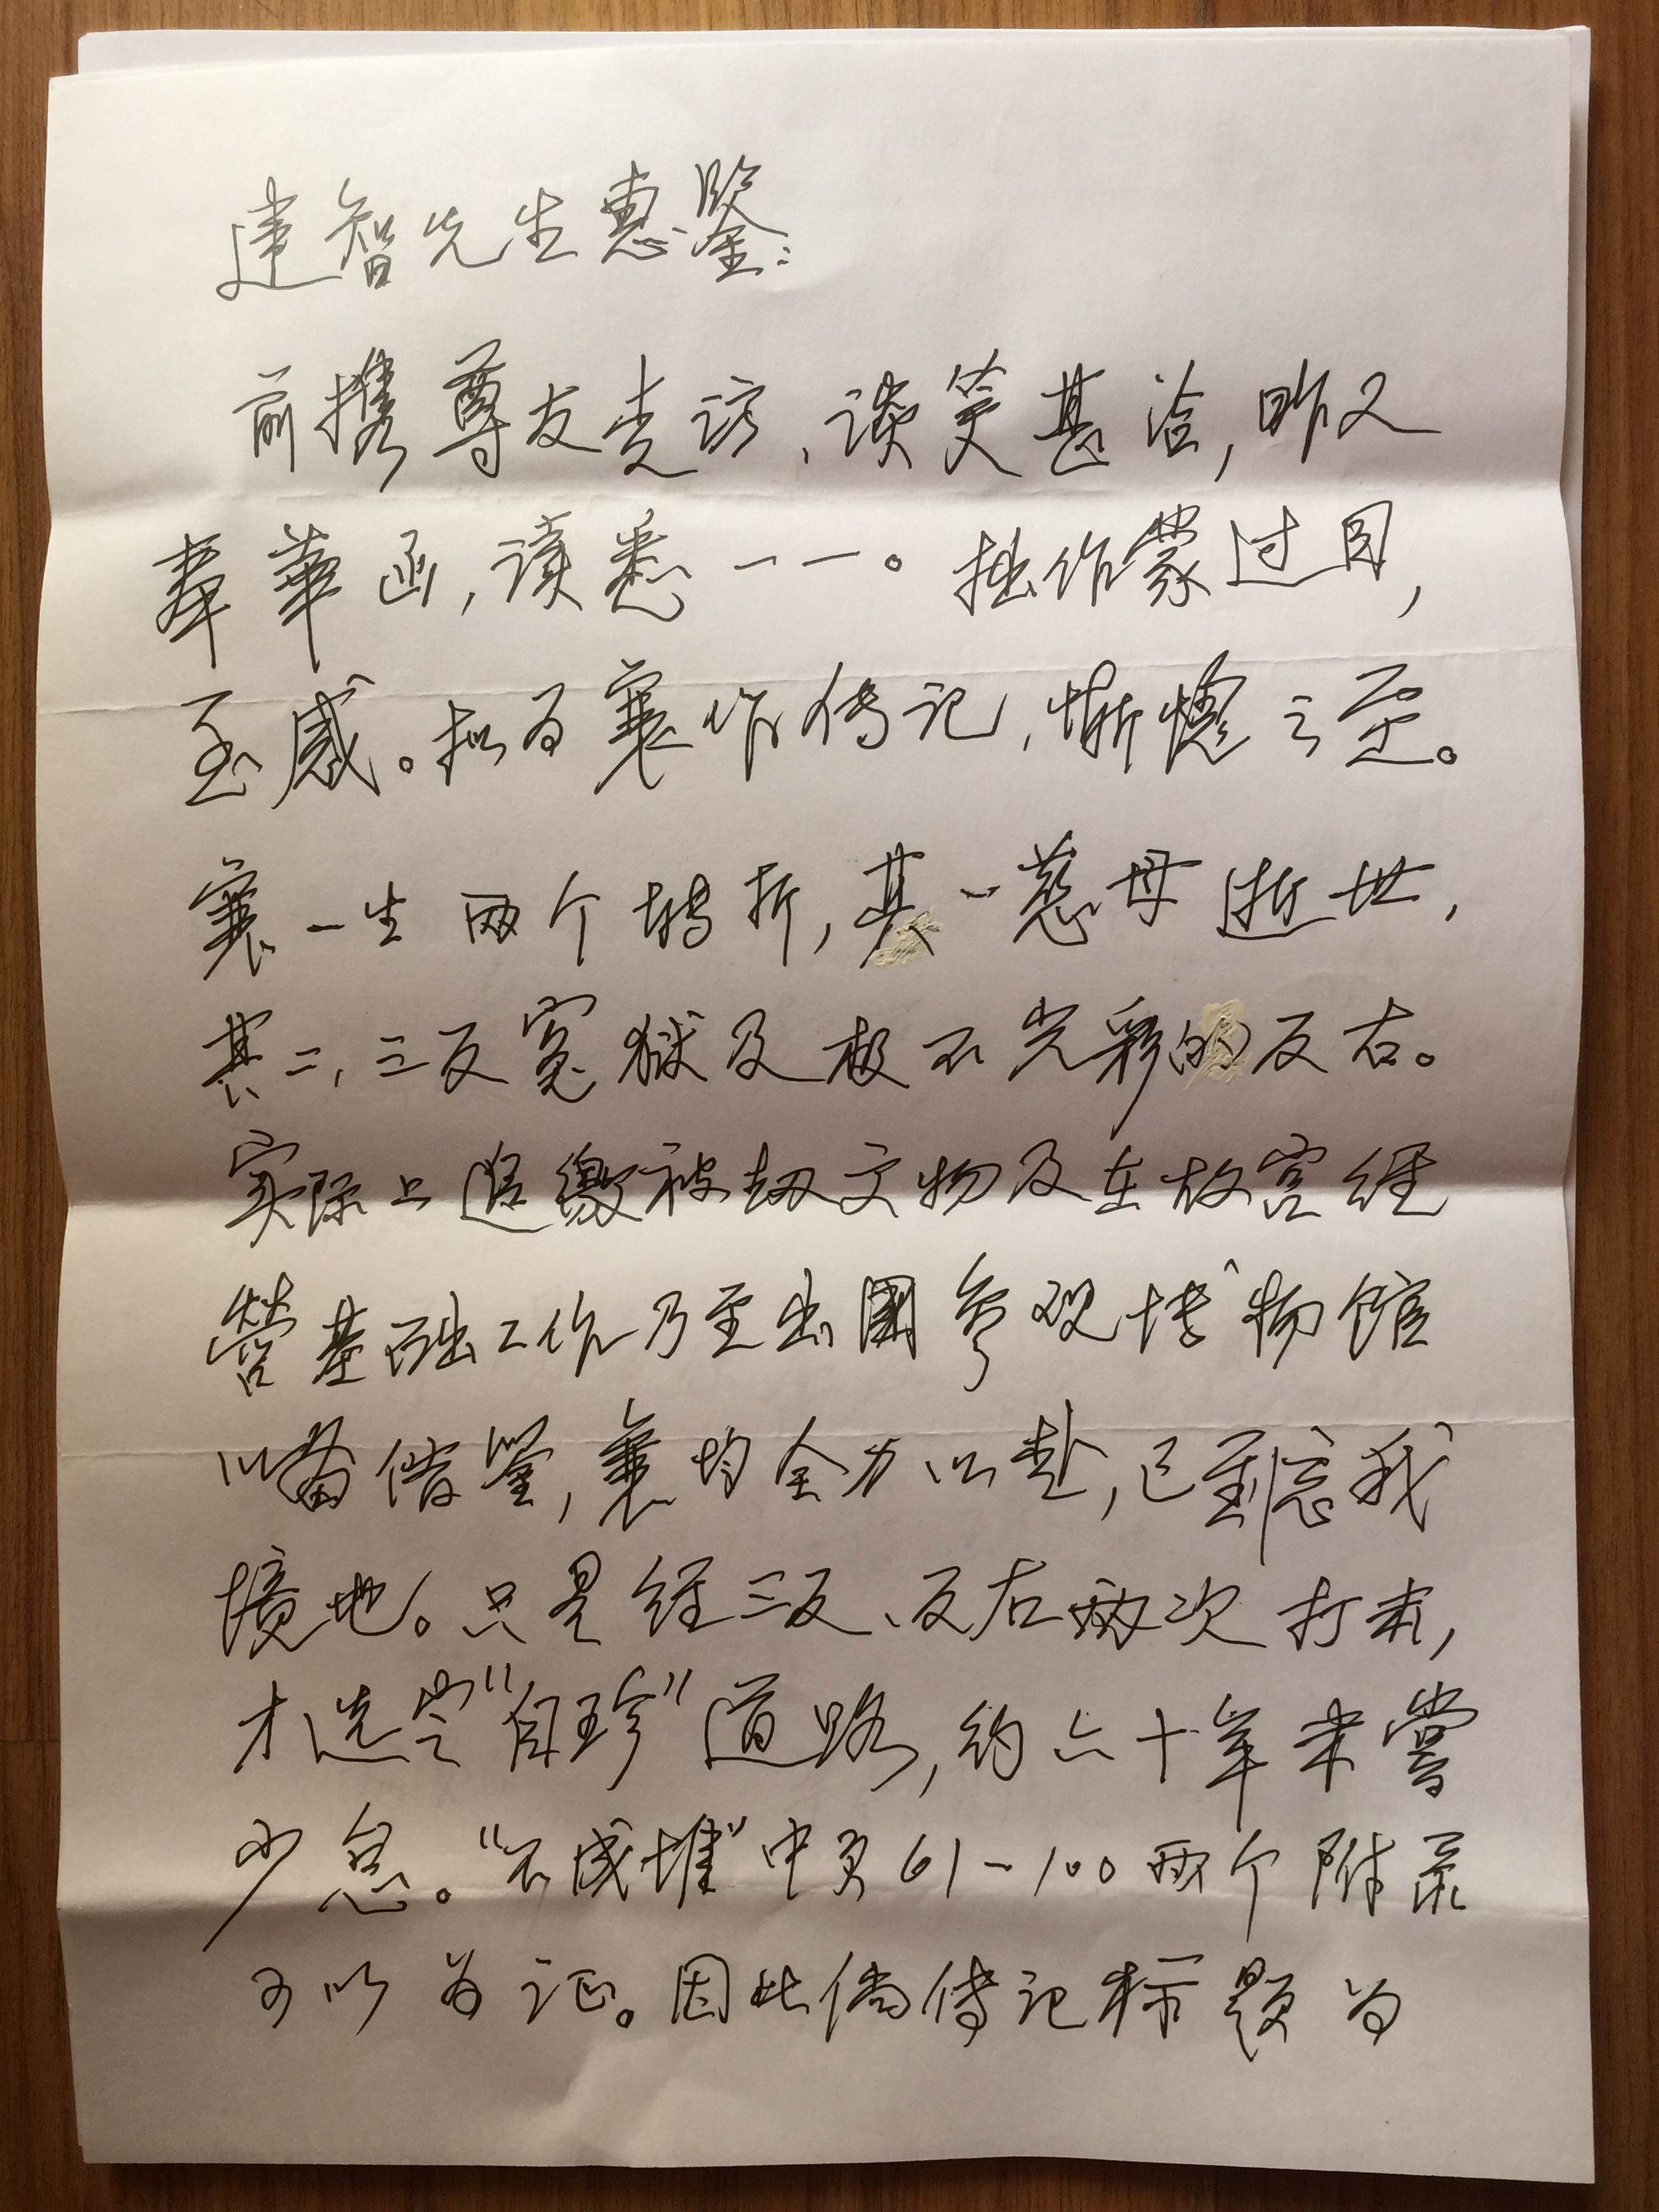 建智先生惠鉴：
前携尊友来访、谈笑甚洽，昨又
奉华函，读悉一一。拙作蒙过目，
至感。拟为襄作传记，惭愧之至。
襄一生两个转折，其一慈母逝世，
其二，三反冤狱及极不光彩的反右。
实际上追缴被劫文物及在故宫经
营基础工作乃至出國参观博物馆
以备借鉴，襄均全力以赴，已到忘我
境地。只是经三反、反右两次打击，
才选定“自珍”道路，约六十年未尝
少怠。“不成堆”中页61-100两个附录
可以为证。因此倘传记标题为